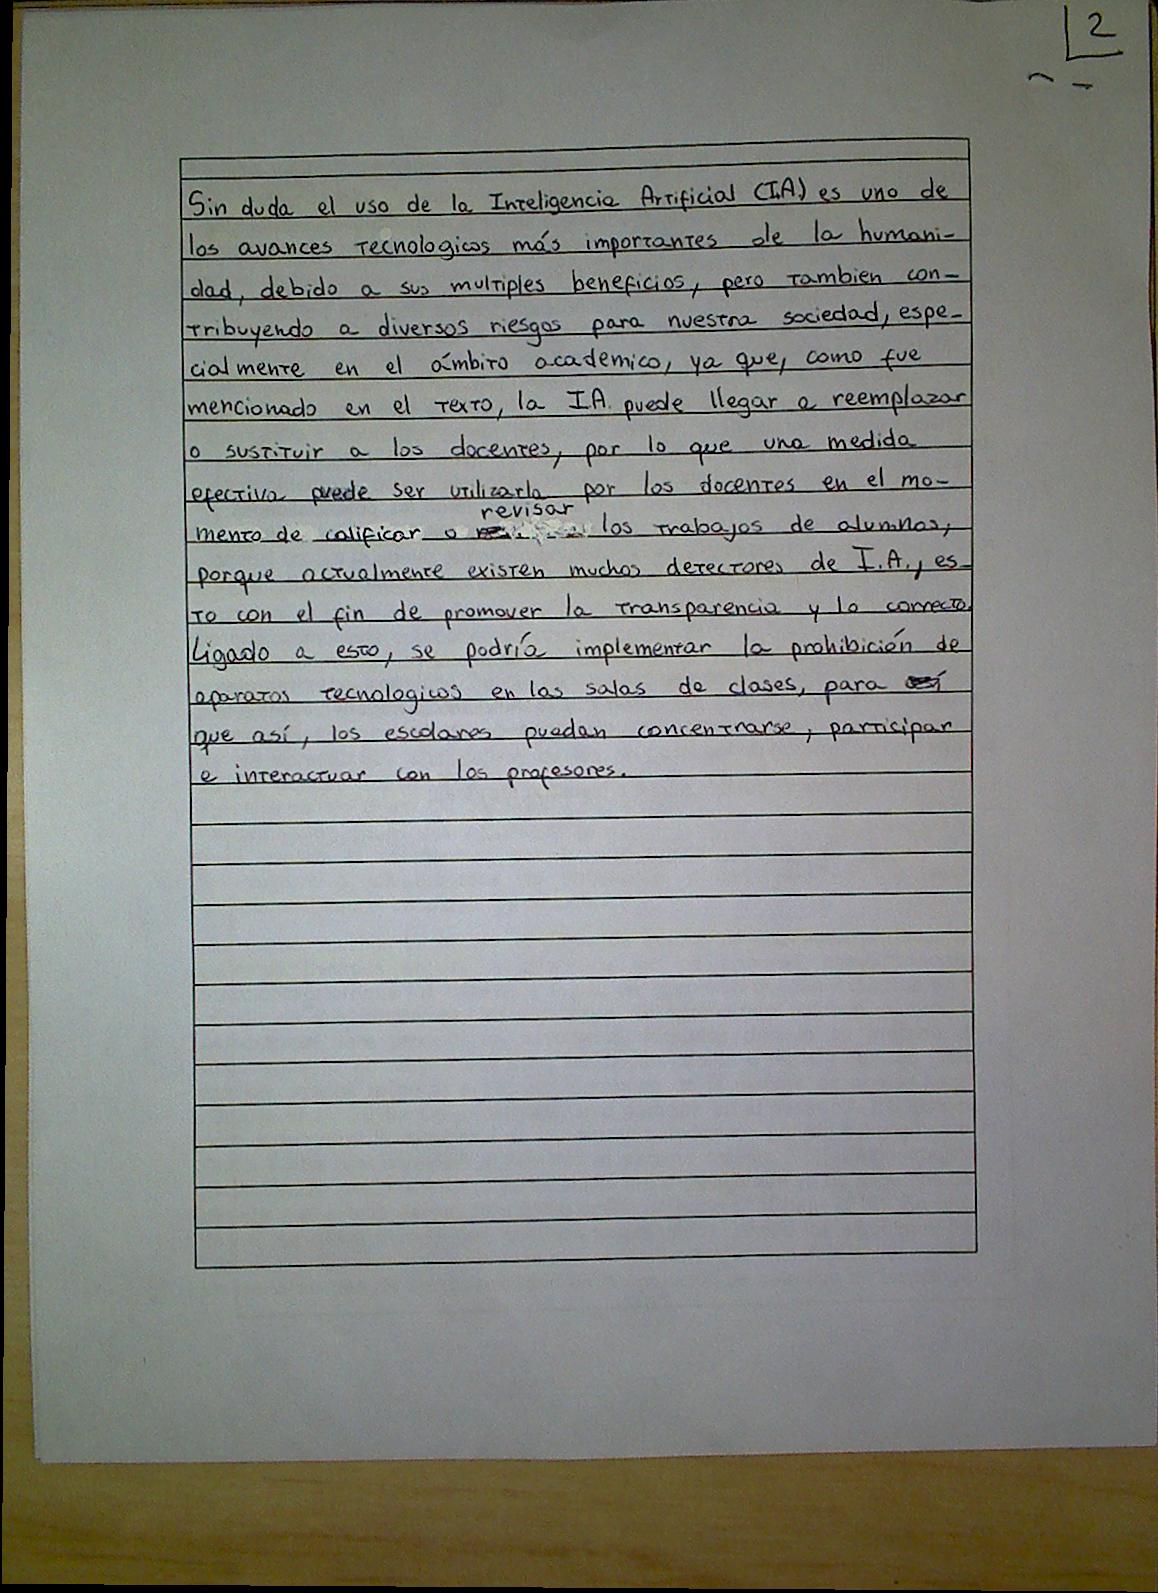 2
Sin duda el uso de la Inteligencia Artificial (IA) es uno de
los avances tecnologicos más importantes de la humani-
dad, debido a sus multiples beneficios, pero tambien con-
tribuyendo a diversos riesgos para nuestra sociedad, espe-
cialmente en el ámbito academico, ya que, como fue
mencionado en el texto, la IA. puede llegar a reemplazar
o sustituir a los docentes, por lo que una medida
efectiva puede ser utilizarla por los docentes en el mo-
mento de calificar o revisar los trabajos de alumnos,
porque actualmente existen muchos detectores de I.A., es-
to con el fin de promover la transparencia y lo correcto.
Ligado a esto, se podría implementar la prohibición de
aparatos tecnologicos en las salas de clases, para
que así, los escolares puedan concentrarse, participar
e interactuar con los profesores.